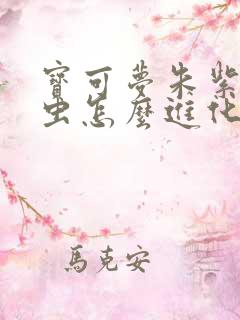 寶可夢朱紫
虫怎麼進化
馬克安